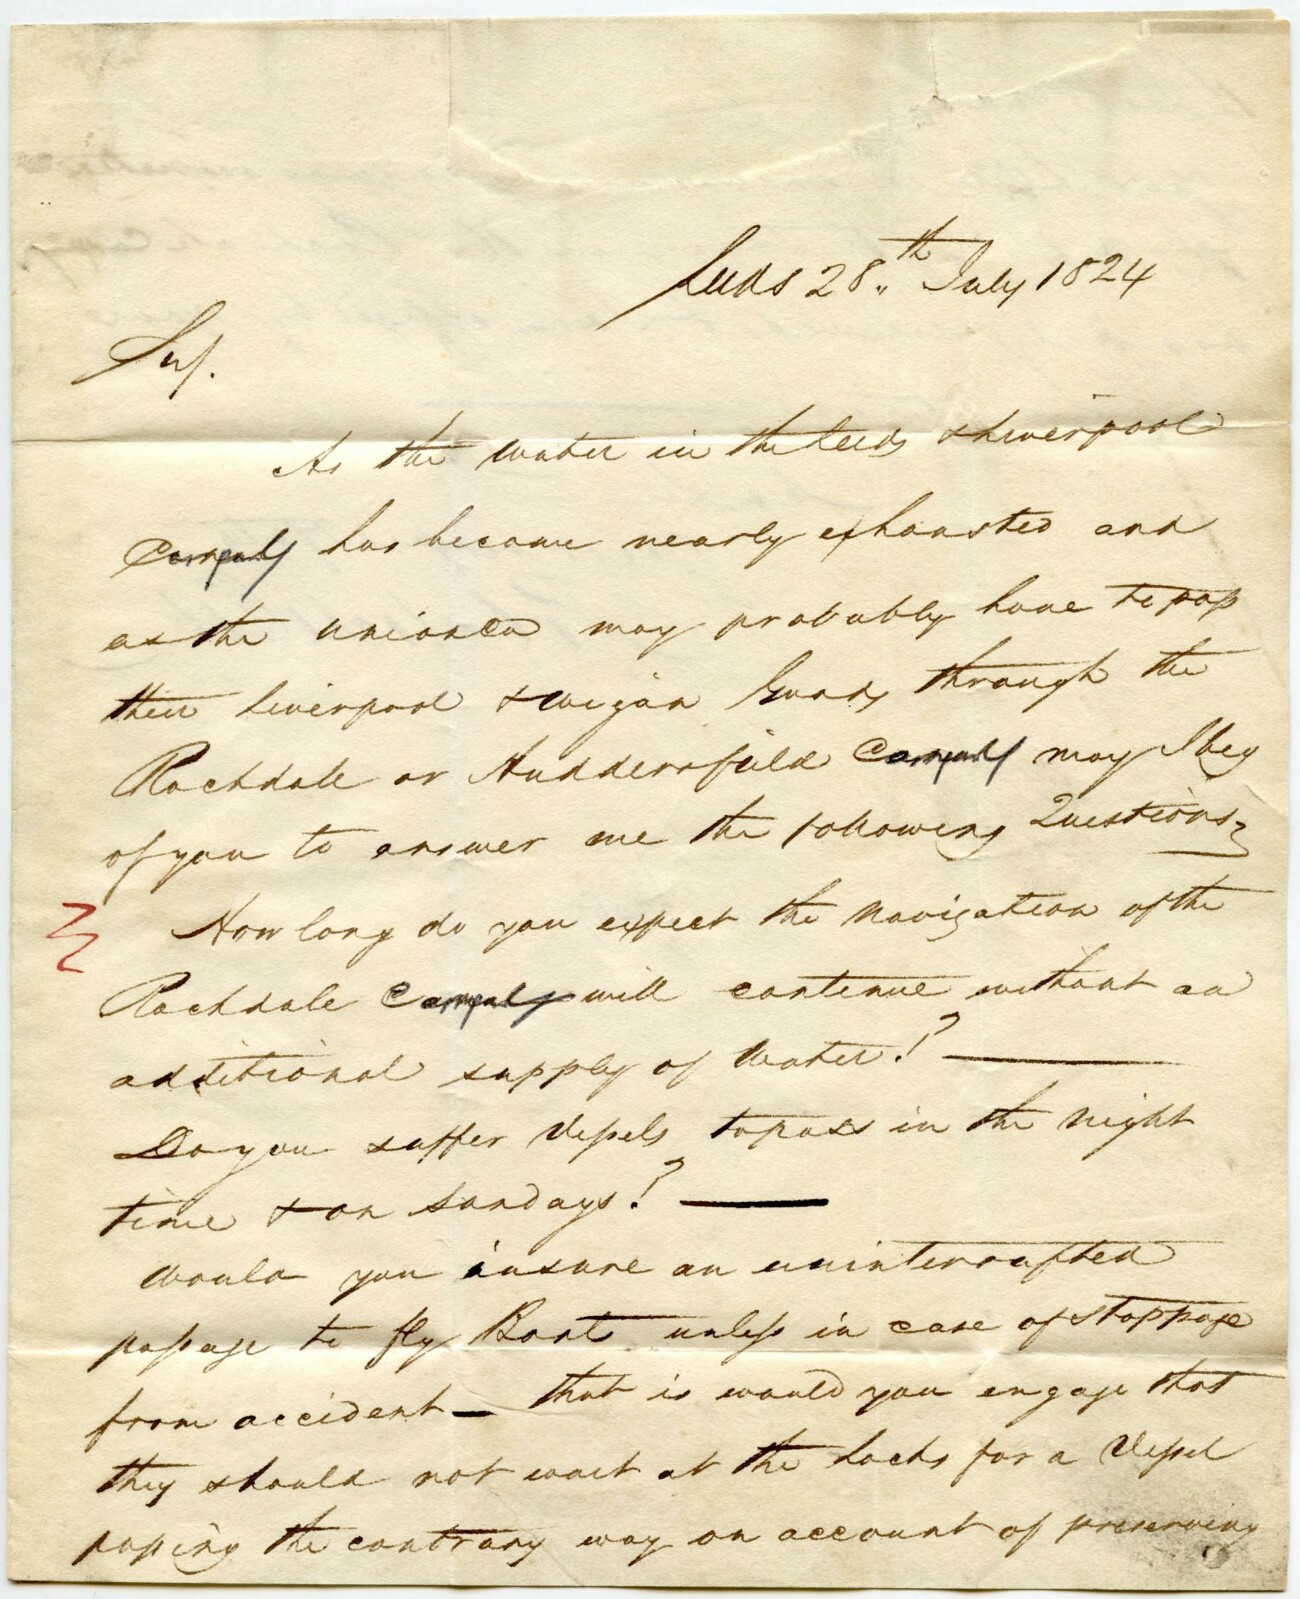 Leeds 28th July 1824
Sir,
As the Water in the Leeds & Liverpool
Canal has become nearly exhausted and
as the Union Co may probably have to pass
their Liverpool & Wigan Goods through the
Rochdale or Huddersfield Canal may I beg
of you to answer me the following Questions,
How long do you expect the Navigation of the
Rochdale Canal will continue without an
additional supply of Water? —
Do you suffer Vessels to pass in the Night
time & on Sundays? —
Would you insure an uninterrupted
passage to fly Boats unless in case of stoppage
from accident — that is would you engage that
they should not wait at the Locks for a Vessel
passing the contrary way on account of preserving